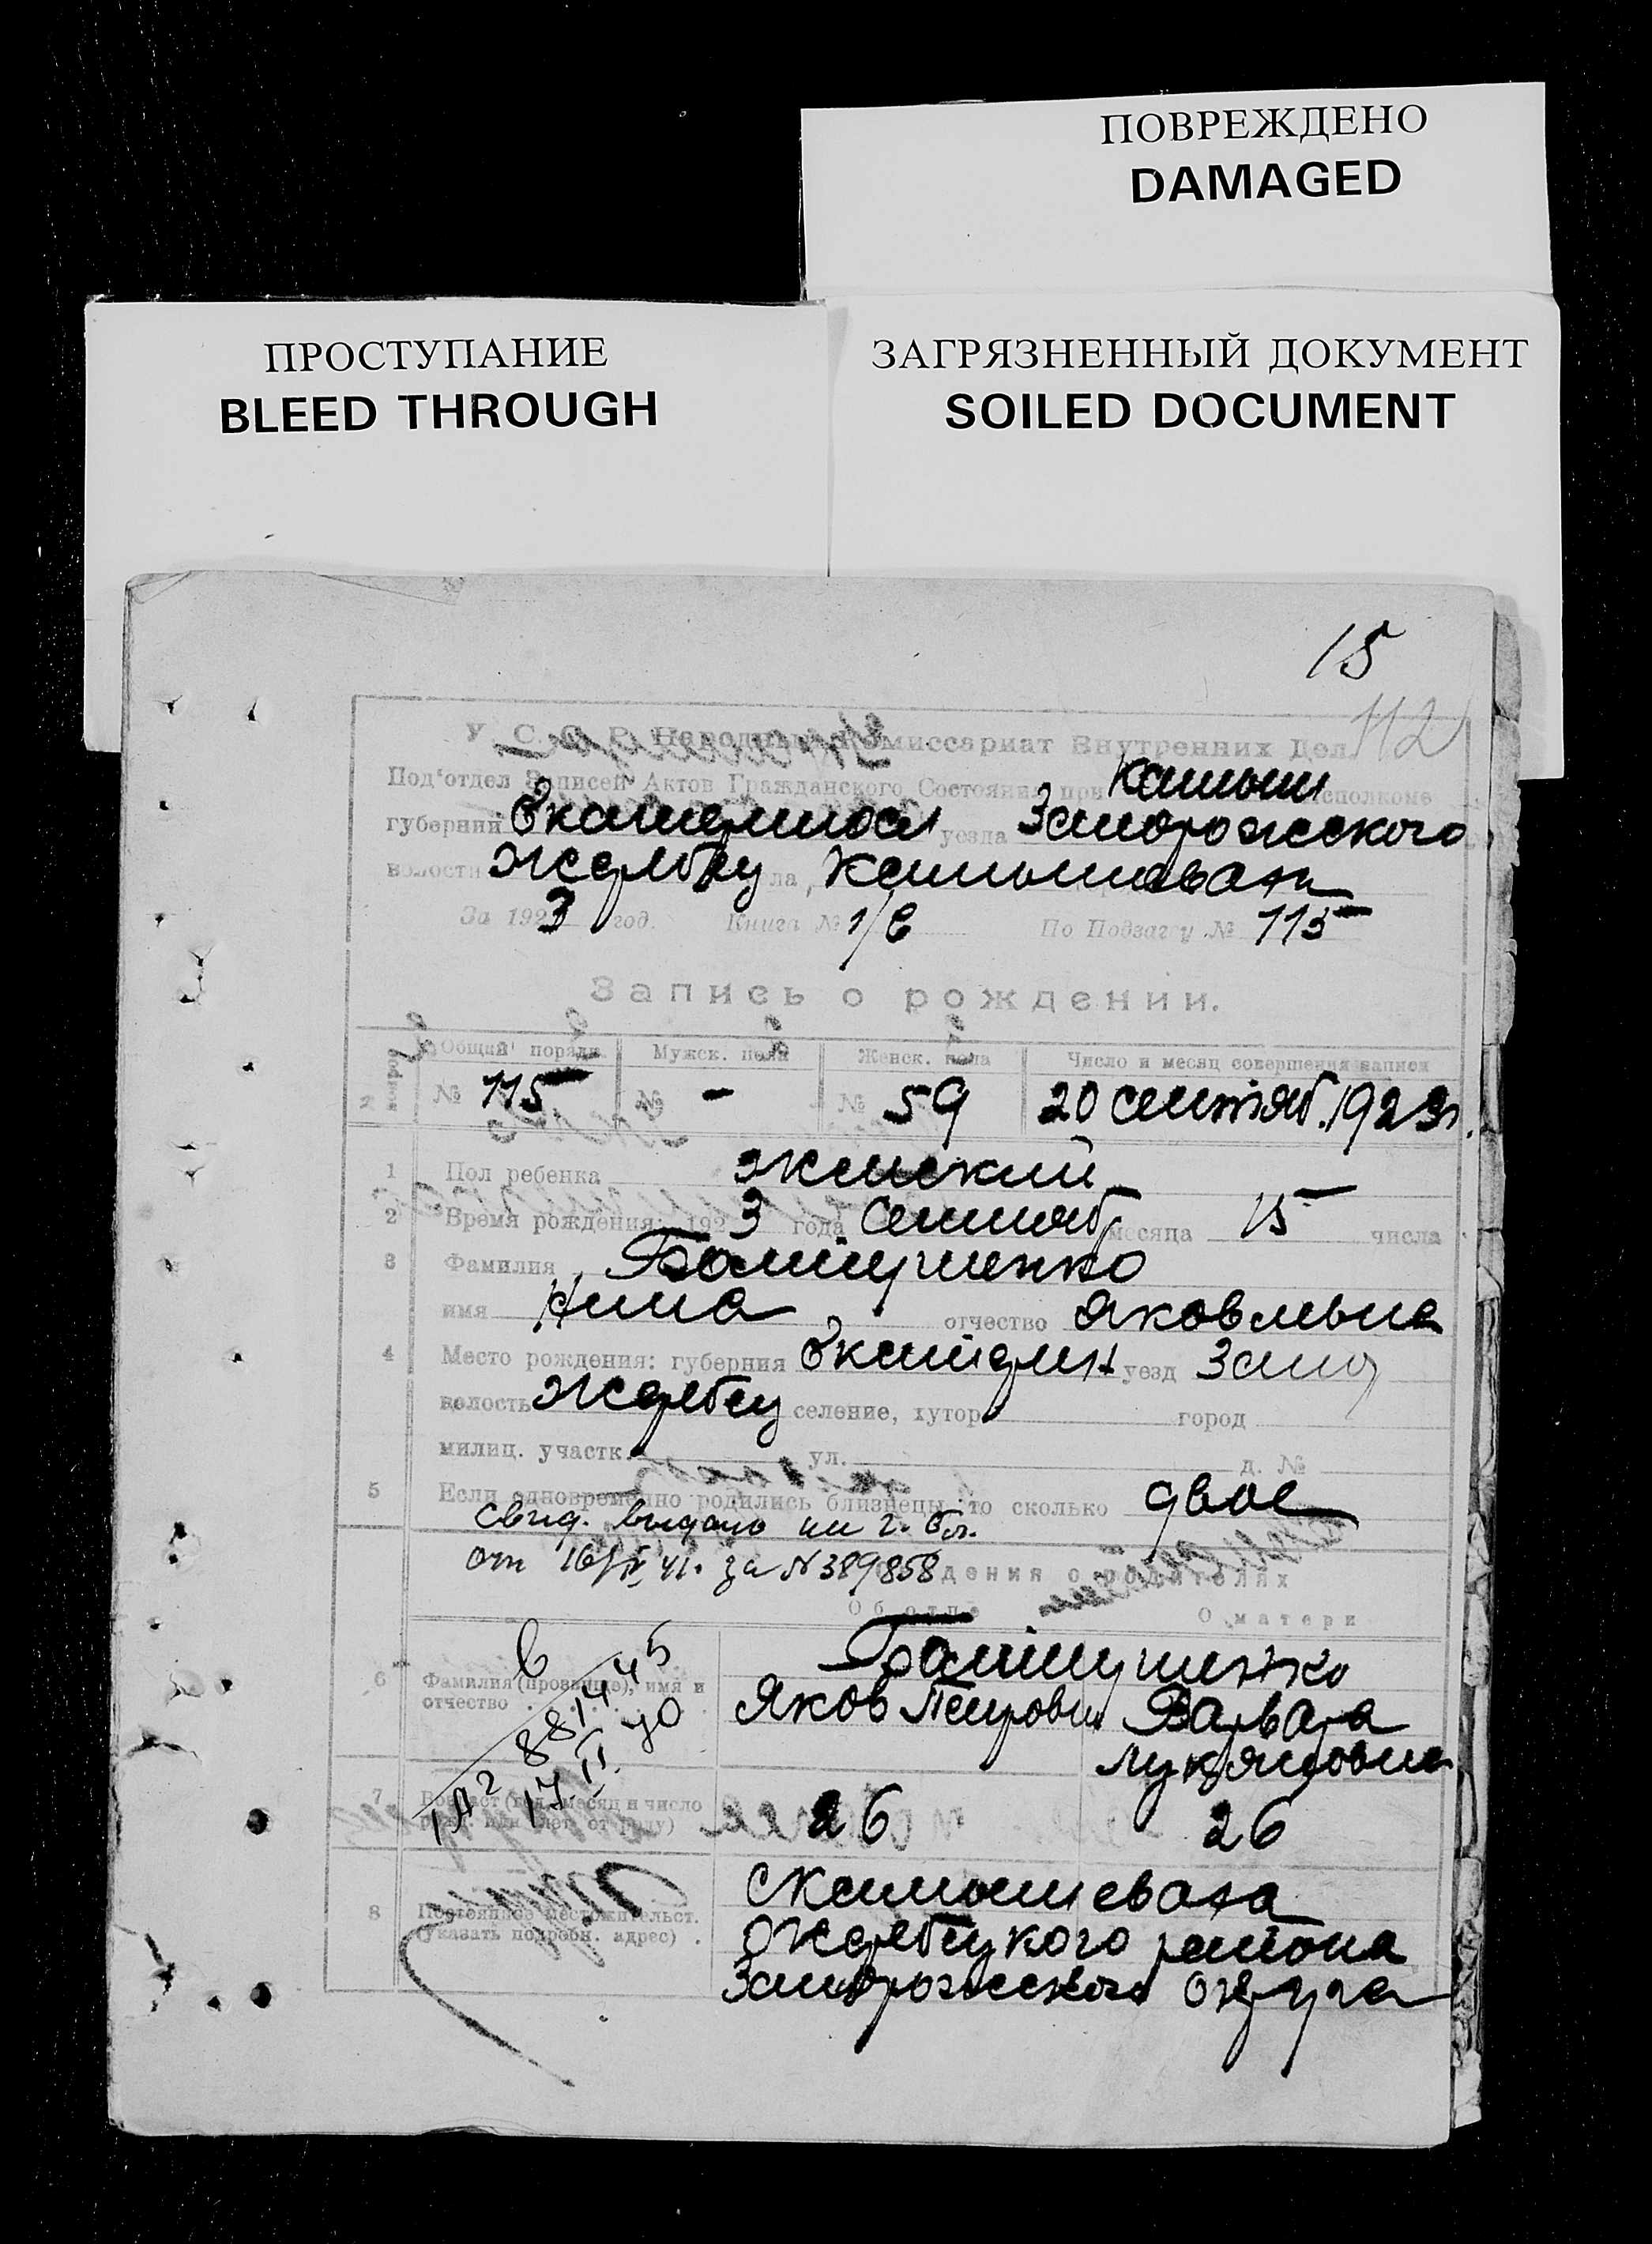 ПОВРЕЖДЕНО
DAMAGED
ПРОСТУПАНИЕ
BLEED THROUGH
ЗАГРЯЗНЕННЫЙ ДОКУМЕНТ
SOILED DOCUMENT
15
112
У. С. С. Р. Народный Комиссариат Внутренних Дел
Под'отдел Записей Актов Гражданского Состояния при Камыш исполкоме
губернии Екатеринос уезда Запорожского
волости Жеребец ла, Камышеваха
За 1923 год. Книга № 1/6 По Подзагсу № 115
Запись о рождении.
Общий порядк. Мужск. пола Женск. пола Число и месяц совершения записи
№ 115 № - № 59 20 сентяб. 1923 г.
1 Пол ребенка женский
2 Время рождения: 1923 года Сентяб месяца 15 числа
3 Фамилия
имя Нина отчество Яковльна
4 Место рождения: губерния Екатерин уезд Запо
волость Жеребец селение, хутор город
милиц. участк. ул. д. №
5 Если одновременно родились близнецы, то сколько двое
Свид. выдано
от 16/IV 41. за N 389858 дения о родителях
Об отце О матери
6 Фамилия (прозвище), имя и
отчество
Яков Петрович Варвара
Лукяновна
7 Возраст (год, месяц и число
26 26
8 Постоянное местожительст.
(указать подробн. адрес)
с Камышеваха
Жеребецкого района
Запорожского округа